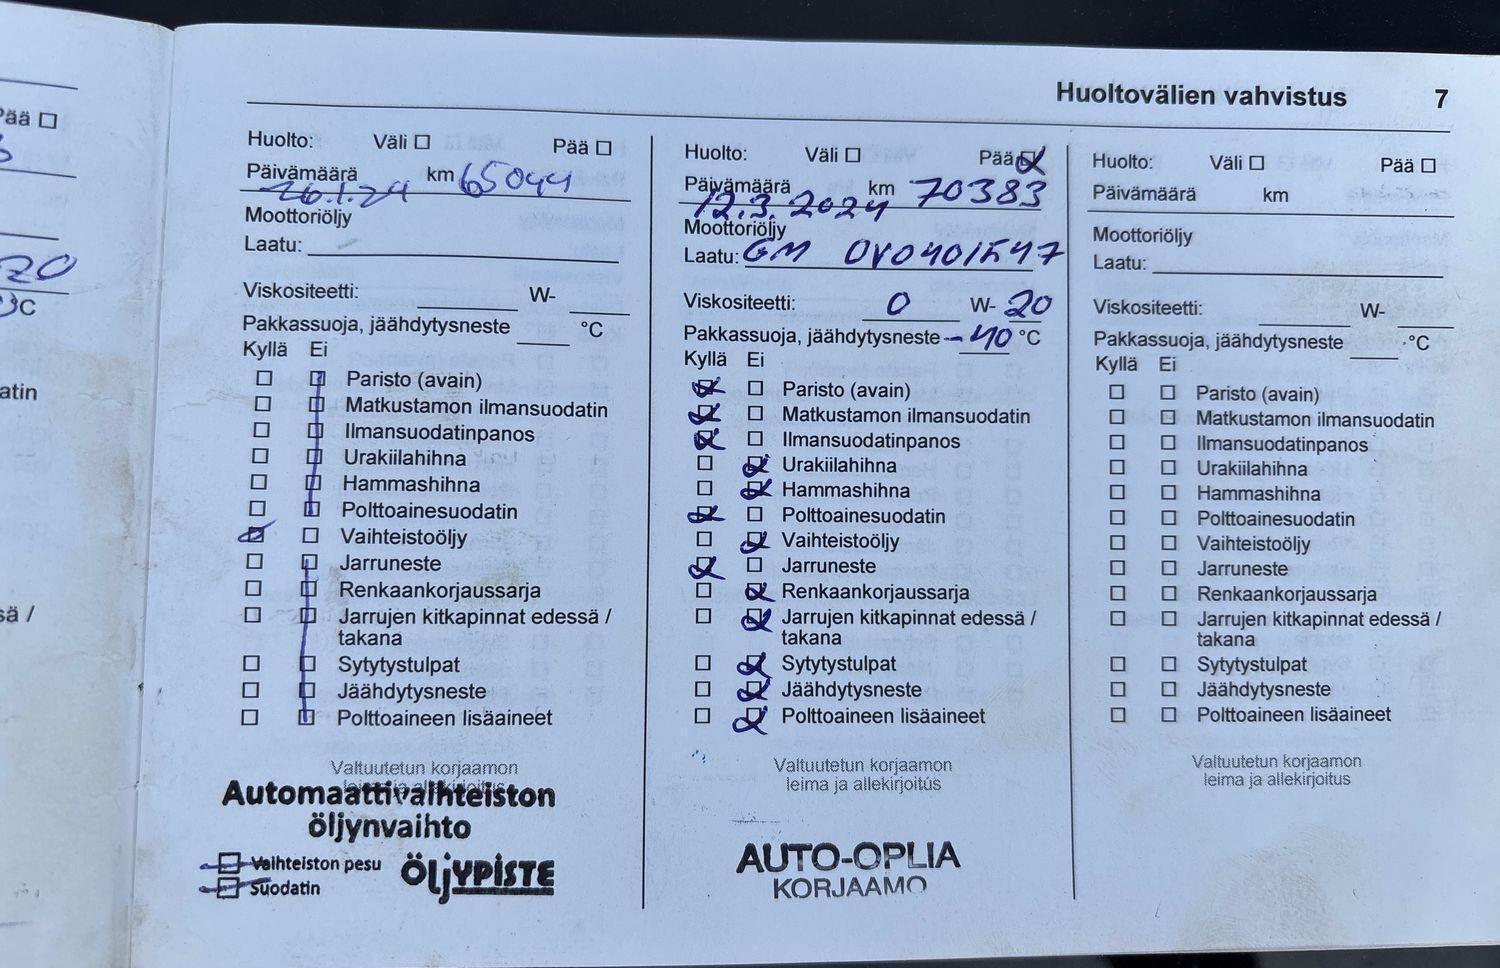 Pää
20
°C
atin
sä /
Huoltovälien vahvistus 7
Huolto: Väli Pää
Päivämäärä km 65044
26.1.24
Moottoriöljy
Laatu:
Viskositeetti: W-
Pakkassuoja, jäähdytysneste °C
Kyllä Ei
Paristo (avain)
Matkustamon ilmansuodatin
Ilmansuodatinpanos
Urakiilahihna
Hammashihna
Polttoainesuodatin
Vaihteistoöljy
Jarruneste
Renkaankorjaussarja
Jarrujen kitkapinnat edessä /
takana
Sytytystulpat
Jäähdytysneste
Polttoaineen lisäaineet
Valtuutetun korjaamon
leima ja allekirjoitus
Automaattivaihteiston
öljynvaihto
Vaihteiston pesu
Suodatin
ÖLJYPISTE
Huolto: Väli Pää
Päivämäärä km 70383
12.3.2024
Moottoriöljy
Laatu: GM OV0401547
Viskositeetti: 0 W- 20
Pakkassuoja, jäähdytysneste -40 °C
Kyllä Ei
Paristo (avain)
Matkustamon ilmansuodatin
Ilmansuodatinpanos
Urakiilahihna
Hammashihna
Polttoainesuodatin
Vaihteistoöljy
Jarruneste
Renkaankorjaussarja
Jarrujen kitkapinnat edessä /
takana
Sytytystulpat
Jäähdytysneste
Polttoaineen lisäaineet
Valtuutetun korjaamon
leima ja allekirjoitus
AUTO-OPLIA
KORJAAMO
Huolto: Väli Pää
Päivämäärä km
Moottoriöljy
Laatu:
Viskositeetti: W-
Pakkassuoja, jäähdytysneste °C
Kyllä Ei
Paristo (avain)
Matkustamon ilmansuodatin
Ilmansuodatinpanos
Urakiilahihna
Hammashihna
Polttoainesuodatin
Vaihteistoöljy
Jarruneste
Renkaankorjaussarja
Jarrujen kitkapinnat edessä /
takana
Sytytystulpat
Jäähdytysneste
Polttoaineen lisäaineet
Valtuutetun korjaamon
leima ja allekirjoitus